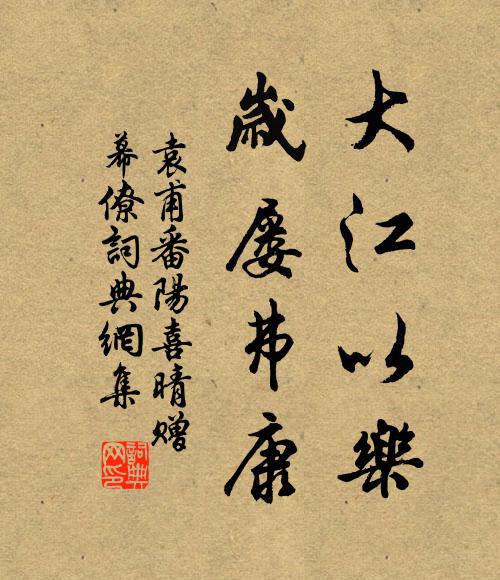 大江以樂
歲屢弗康
袁甫番陽喜晴贈
幕僚詞典網集
詞典
网印